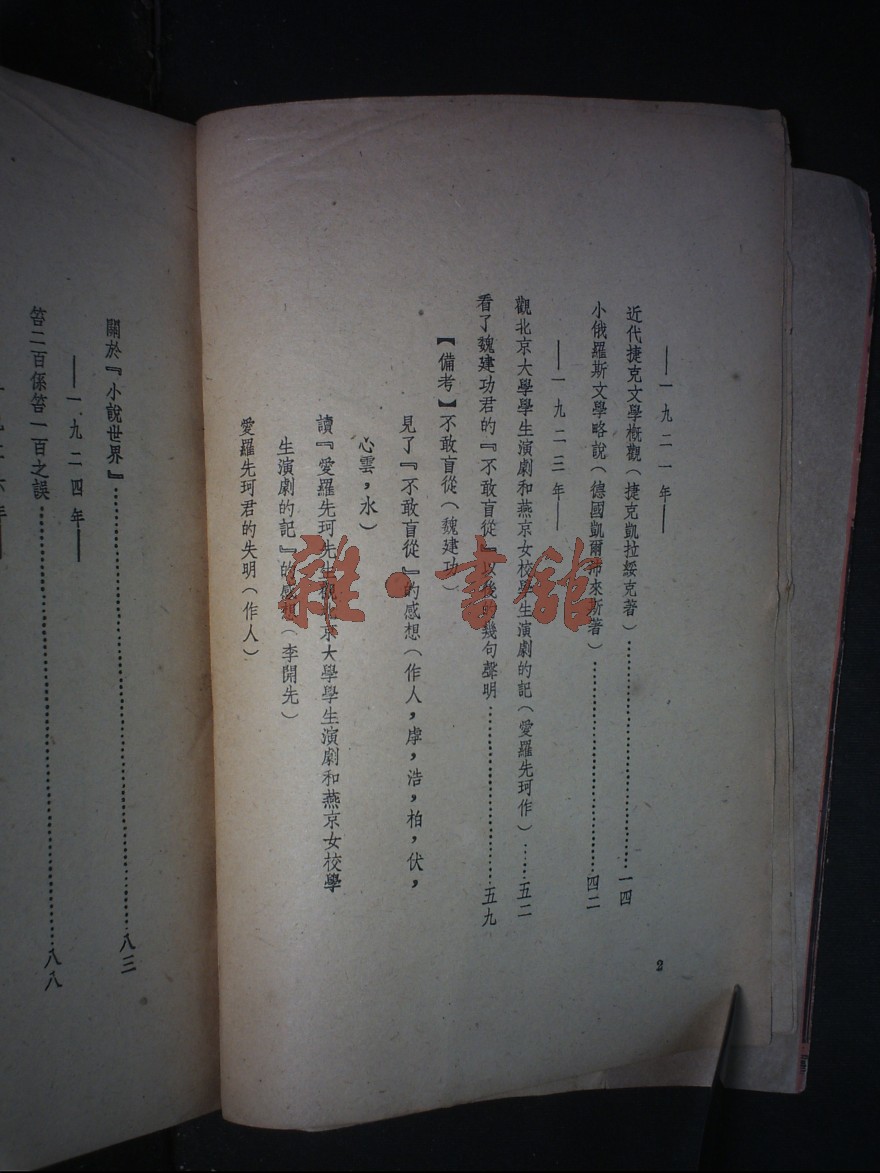 ——一九二一年——
近代捷克文學概觀(捷克凱拉綏克著)……………………一四
小俄羅斯文學略說(德國凱爾沛來斯著)……………………四二
——一九二三年——
觀北京大學學生演劇和燕京女校學生演劇的記(愛羅先珂作)……五二
看了魏建功君的『不敢盲從』以後的幾句聲明……………………五九
【備考】不敢盲從(魏建功)
見了『不敢盲從』的感想(作人,虖,浩,柏,伏,
心雲,水)
讀『愛羅先珂先生觀北京大學學生演劇和燕京女校學
生演劇的記』的感想(李開先)
愛羅先珂君的失明(作人)
2
關於『小說世界』……………………八三
——一九二四年——
答二百係答一百之誤……………………八八
年——
雜·書館